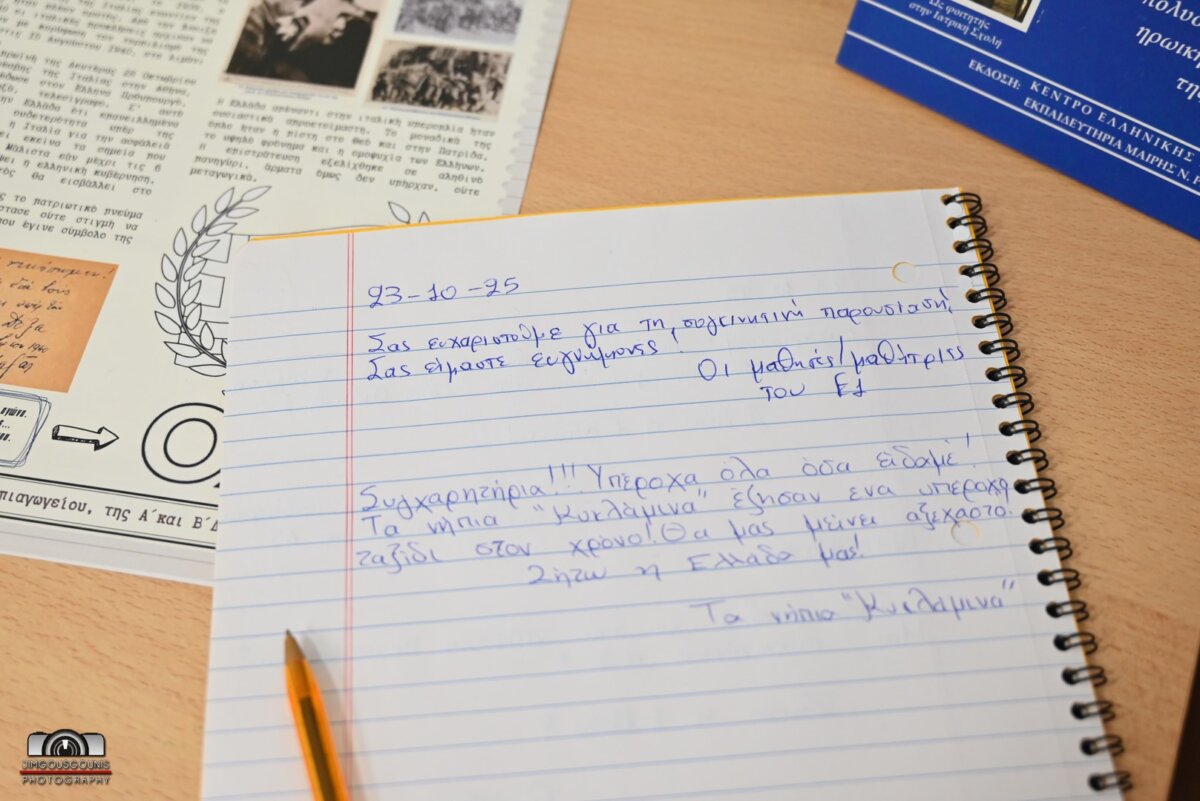 τις 15 Αυγούστου 1940, στο λιμάνι
της Δευτέρας 28 Οκτωβρίου
της Ιταλίας στην Αθήνα,
στον Έλληνα Πρωθυπουργό,
τελεσίγραφο. Σ' αυτό
Ελλάδα ότι επανειλημμένα
ουδετερότητα υπέρ της
η Ιταλία για την ασφάλειά
εκείνα τα σημεία που
Μάλιστα εάν μέχρι τις 6
η ελληνική κυβέρνηση,
θα εισβάλλει στο
το πατριωτικό πνεύμα
ούτε στιγμή να
που έγινε σύμβολο της
Η Ελλάδα απέναντι στην ιταλική υπεροπλία ήταν
ουσιαστικά απροετοίμαστη. Το μοναδικό της
όπλο ήταν η πίστη στο Θεό και στην Πατρίδα,
το υψηλό φρόνημα και η ομοψυχία των Ελλήνων.
Η επιστράτευση εξελίχθηκε σε αληθινό
πανηγύρι, άρματα όμως δεν υπήρχαν, ούτε
μεταγωγικά.
πιαγωγείου, της Α΄και Β΄Δ
Ως φοιτητής
στην Ιατρική Σχολή
πολυσ
ηρωικη
της
ΕΚΔΟΣΗ: ΚΕΝΤΡΟ ΕΛΛΗΝΙΚΗΣ
ΕΚΠΑΙΔΕΥΤΗΡΙΑ ΜΑΙΡΗΣ Ν. Ρ
23-10-25
Σας ευχαριστούμε για τη συγκινητική παρουσίαση!
Σας είμαστε ευγνώμονες!
Οι μαθητές/μαθήτριες
του Ε1
Συγχαρητήρια!!! Υπέροχα όλα όσα είδαμε!
Τα νήπια "Κυκλάμινα" έζησαν ένα υπέροχο
ταξίδι στον χρόνο! Θα μας μείνει αξέχαστο!
Ζήτω η Ελλάδα μας!
Τα νήπια "Κυκλάμινα"
JIMGOUSGOUNIS
PHOTOGRAPHY